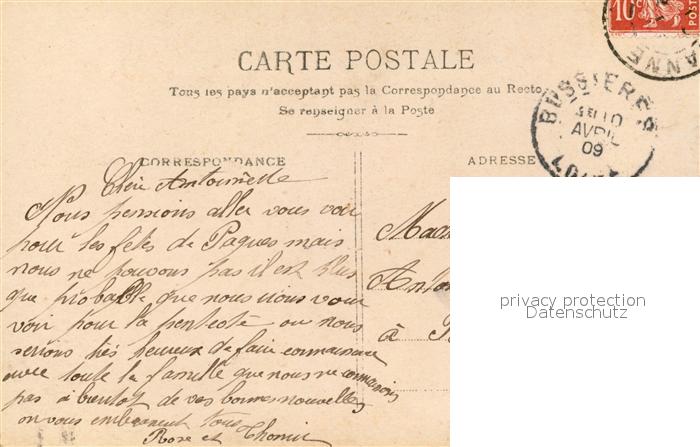 10c
POSTES
ANNE
CARTE POSTALE
Tous les pays n'acceptent pas la Correspondance au Recto
Se renseigner à la Poste
BUSSIERES
10
AVRIL
09
LOIRE
CORRESPONDANCE
ADRESSE
Chère Antoinette
Nous pensions aller vous voir
pour les fêtes de Paques mais
nous ne pouvons pas il est plus
que probable que nous irons vous
voir pour la pentecôte ou nous
serions très heureux de faire connaissance
avec toute la famille que nous ne connaissons
pas à bientot de vos bonnes nouvelles
on vous embrassent tous
Rose et
à
privacy protection
Datenschutz